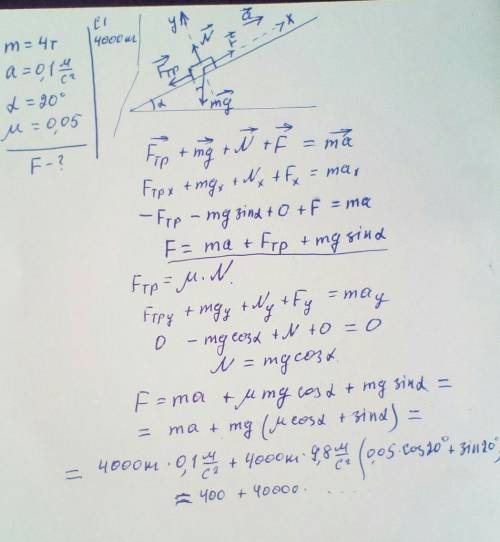 m = 4т
СИ
4000кг
a = 0,1 м/с²
α = 20°
μ = 0,05
F - ?
y
N
F
a
x
Fтр
α
mg
Fтр + mg + N + F = ma
Fтрx + mgx + Nx + Fx = max
-Fтр - mg sinα + 0 + F = ma
F = ma + Fтр + mg sinα
Fтр = μ · N.
Fтрy + mgy + Ny + Fy = may
0 - mg cosα + N + 0 = 0
N = mg cosα
F = ma + μ mg cosα + mg sinα =
= ma + mg (μ cosα + sinα) =
= 4000кг · 0,1 м/с² + 4000кг · 9,8 м/с² (0,05 · cos20° + sin20°)
≈ 400 + 40000 · . . . . .